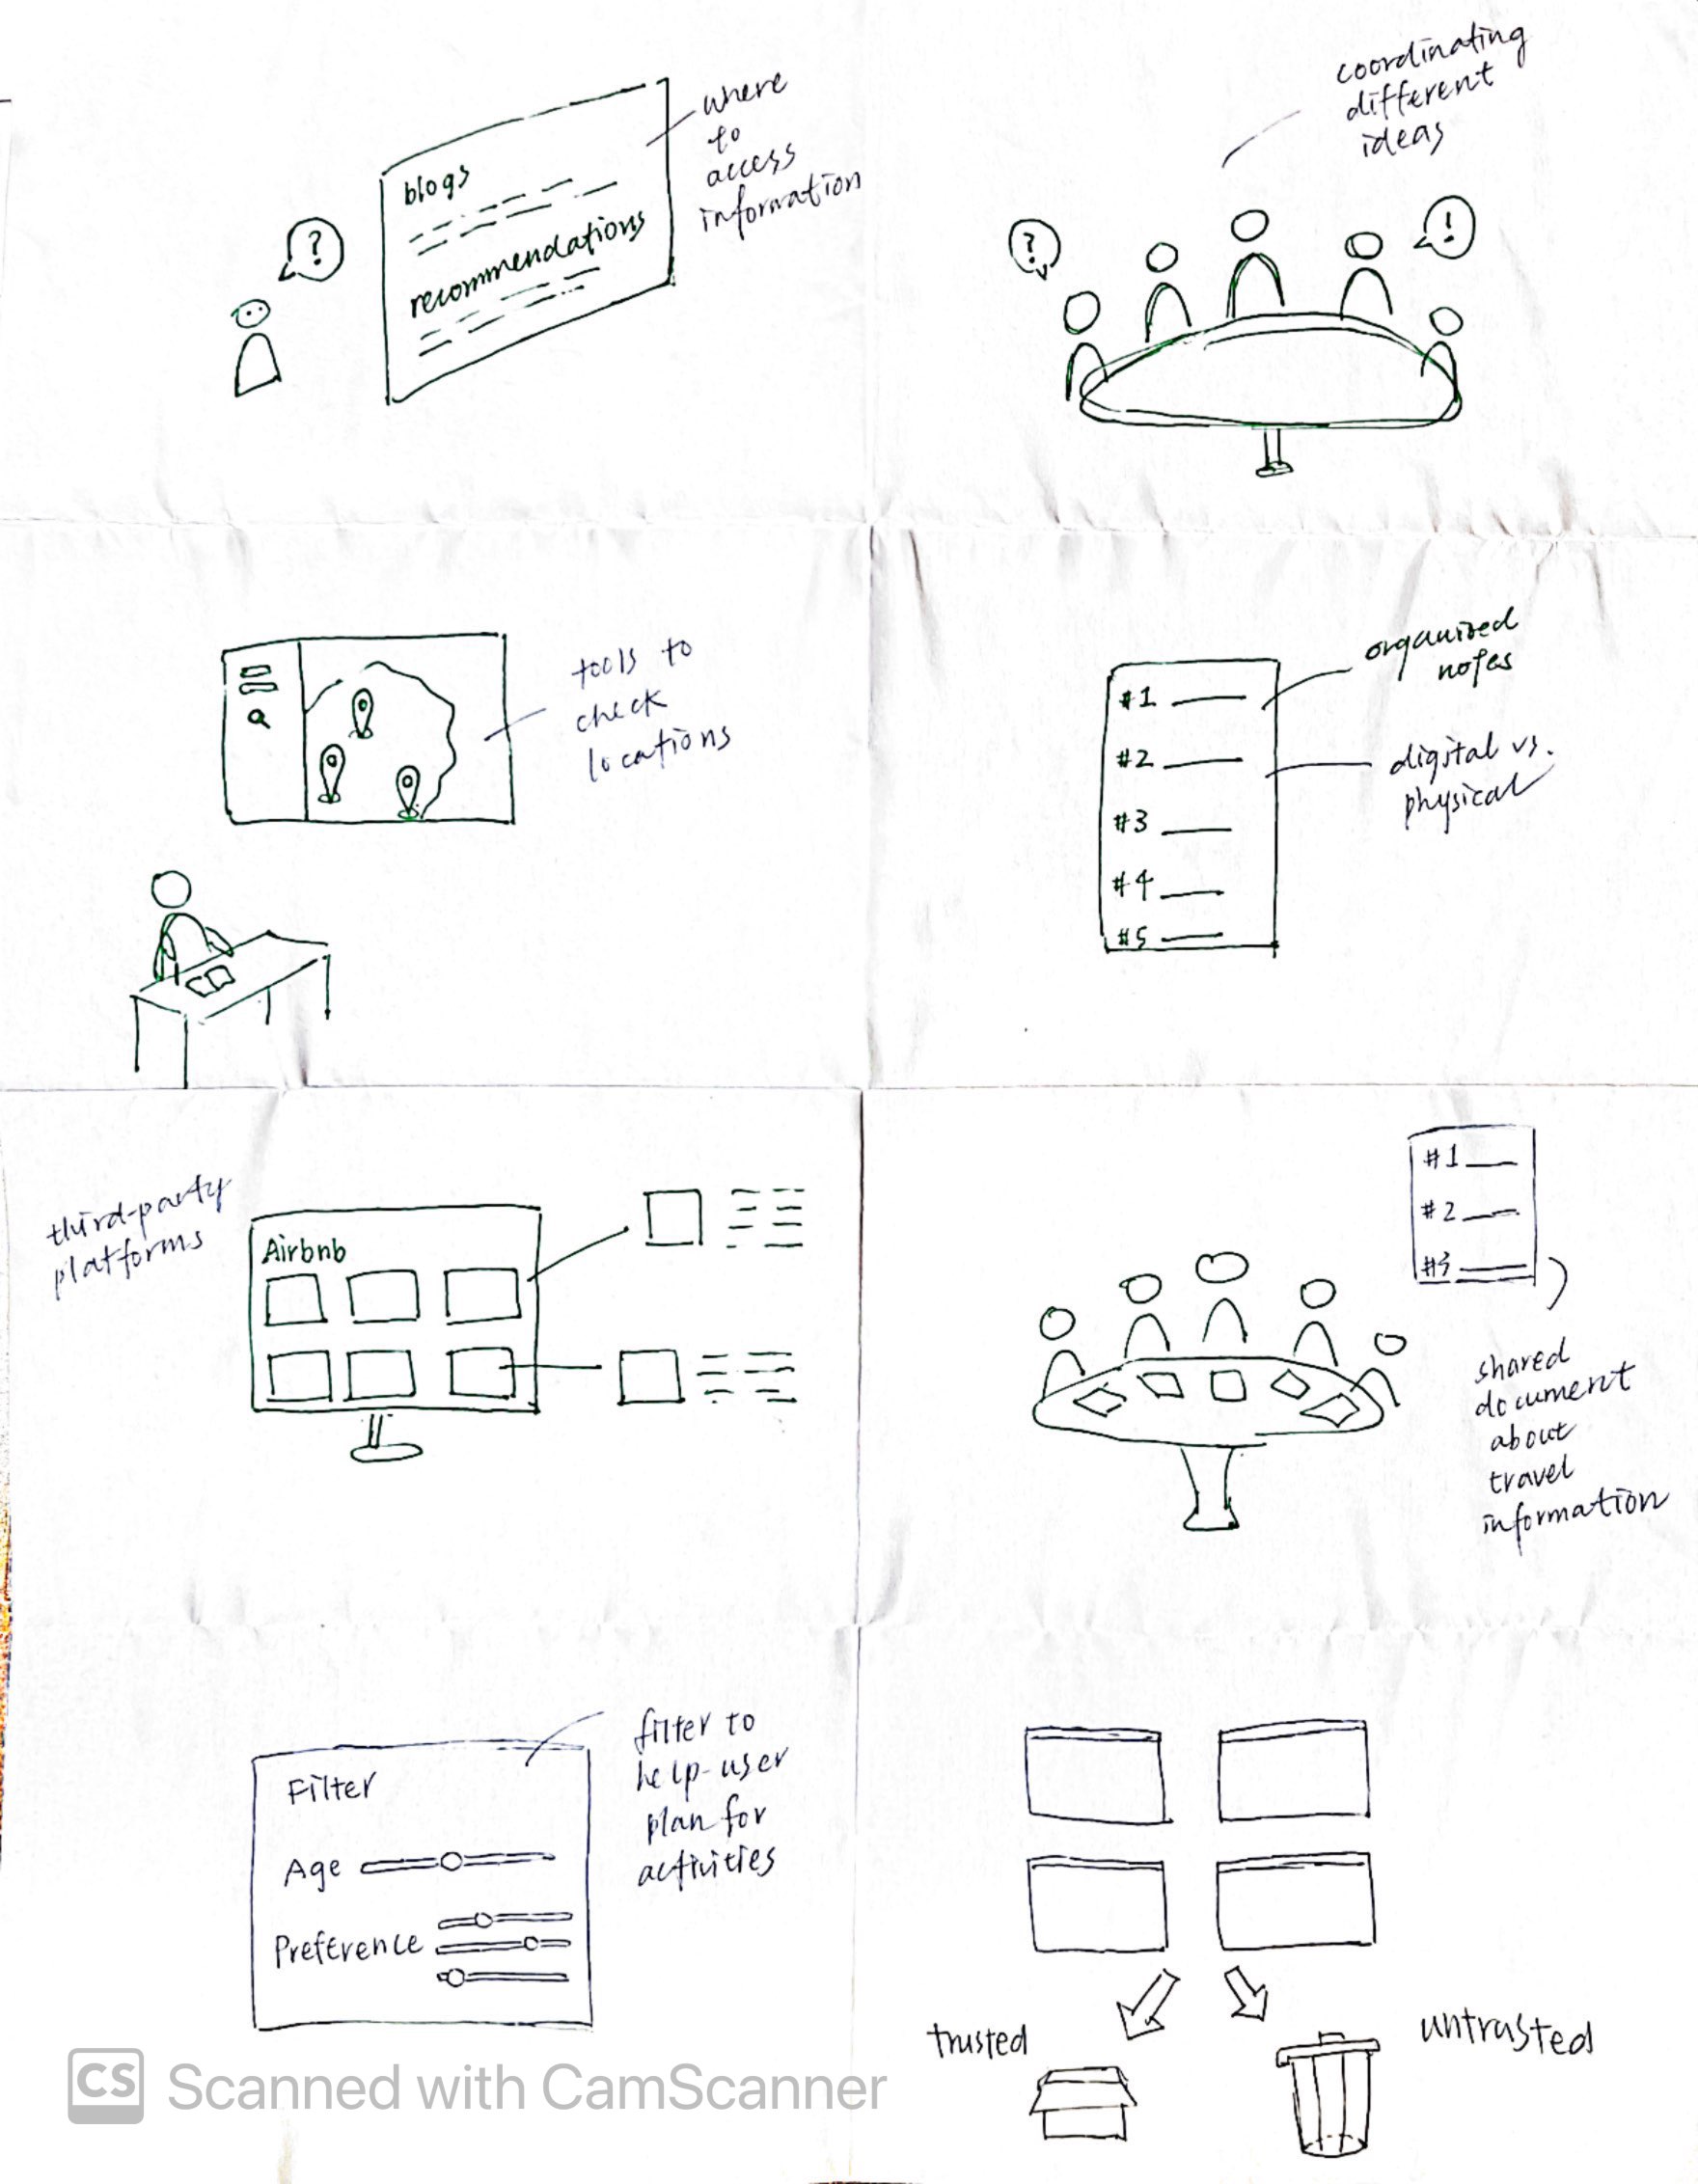 blogs
recommendations
?
where
to
access
information
coordinating
different
ideas
?
!
tools to
check
locations
#1
#2
#3
#4
#5
organized
notes
digital vs.
physical
third-party
platforms
Airbnb
#1
#2
#3
shared
document
about
travel
information
Filter
Age
Preference
filter to
help-user
plan for
activities
trusted
untrusted
CS Scanned with CamScanner